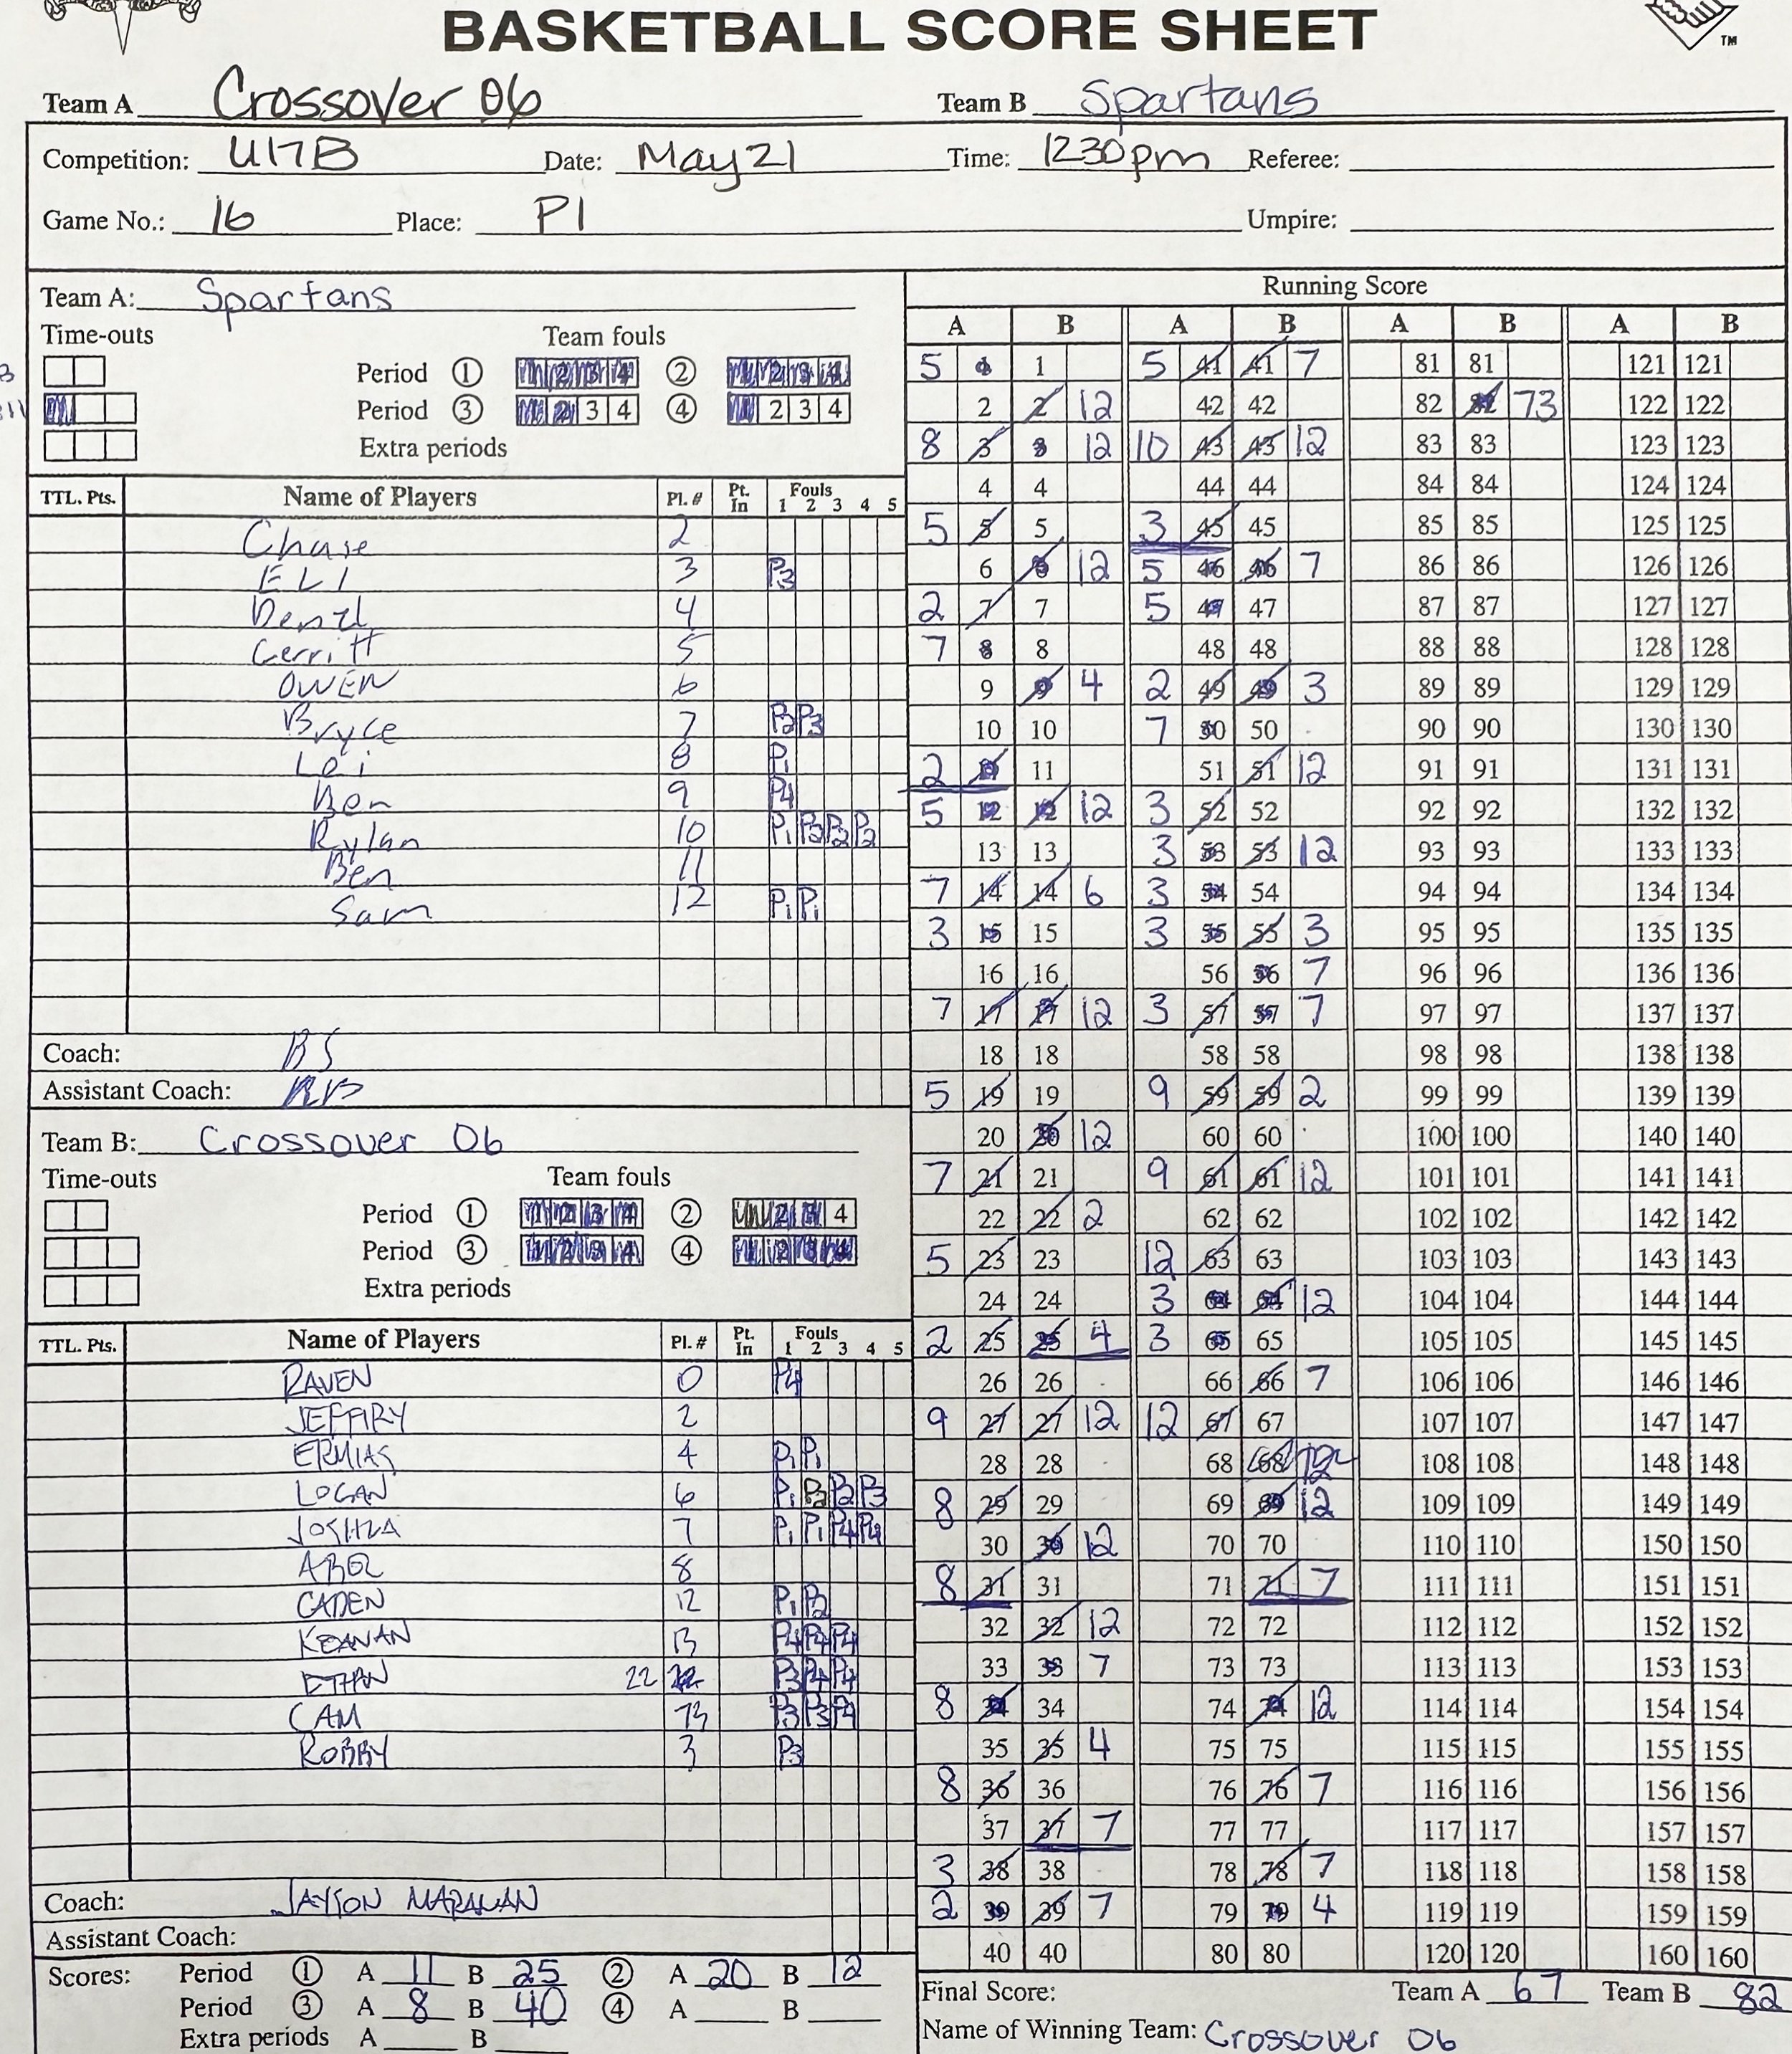 BASKETBALL SCORE SHEET
TM
Team A Crossover 06 Team B Spartans
Competition: U17B Date: May 21 Time: 1230pm Referee:
Game No.: 16 Place: P1 Umpire:
Team A: Spartans
Time-outs Team fouls
Period 1 1 2 3 4 2 1 2 3 4
Period 3 1 2 3 4 4 1 2 3 4
Extra periods
TTL. Pts. Name of Players Pl. # Pt. In Fouls 1 2 3 4 5
Chase 2
ELI 3 P3
Denzl 4
Gerritt 5
OWEN 6
Bryce 7 P2 P3
Loi 8 P1
Ben 9 P4
Rylan 10 P1 P2 P2 P2
Ben 11
Sam 12 P1 P1
Coach: BS
Assistant Coach:
Team B: Crossover 06
Time-outs Team fouls
Period 1 1 2 3 4 2 1 2 3 4
Period 3 1 2 3 4 4 1 2 3 4
Extra periods
TTL. Pts. Name of Players Pl. # Pt. In Fouls 1 2 3 4 5
RAVEN 0 P4
JEFFIRY 2
ERMIAS 4 P1 P1
LOGAN 6 P1 P2 P2 P3
JOSHUA 7 P1 P1 P4 P4
ABEL 8
CADEN 12 P1 P2
KEANAN 13 P4 P4 P4
ETHAN 22 P3 P4 P4
CAM 73 P3 P3 P4
ROBBY 3 P3
Coach: JAYSON MARANAN
Assistant Coach:
Scores: Period 1 A 11 B 25 2 A 20 B 12
Period 3 A 8 B 40 4 A B
Extra periods A B
Running Score
A B A B A B A B
5 1 1 5 41 41 7 81 81 121 121
2 2 12 42 42 82 82 73 122 122
8 3 3 12 10 43 43 12 83 83 123 123
4 4 44 44 84 84 124 124
5 5 5 3 45 45 85 85 125 125
6 6 12 5 46 46 7 86 86 126 126
2 7 7 5 47 47 87 87 127 127
7 8 8 48 48 88 88 128 128
9 9 4 2 49 49 3 89 89 129 129
10 10 7 50 50 90 90 130 130
2 11 11 51 51 12 91 91 131 131
5 12 12 12 3 52 52 92 92 132 132
13 13 3 53 53 12 93 93 133 133
7 14 14 6 3 54 54 94 94 134 134
3 15 15 3 55 55 3 95 95 135 135
16 16 56 56 7 96 96 136 136
7 17 17 12 3 57 57 7 97 97 137 137
18 18 58 58 98 98 138 138
5 19 19 9 59 59 2 99 99 139 139
20 20 12 60 60 100 100 140 140
7 21 21 9 61 61 12 101 101 141 141
22 22 2 62 62 102 102 142 142
5 23 23 12 63 63 103 103 143 143
24 24 3 64 64 12 104 104 144 144
2 25 25 4 3 65 65 105 105 145 145
26 26 66 66 7 106 106 146 146
9 27 27 12 12 67 67 107 107 147 147
28 28 68 68 108 108 148 148
8 29 29 69 69 12 109 109 149 149
30 30 12 70 70 110 110 150 150
8 31 31 71 71 7 111 111 151 151
32 32 12 72 72 112 112 152 152
33 33 7 73 73 113 113 153 153
8 34 34 74 74 12 114 114 154 154
35 35 4 75 75 115 115 155 155
8 36 36 76 76 7 116 116 156 156
37 37 7 77 77 117 117 157 157
3 38 38 78 78 7 118 118 158 158
2 39 39 7 79 79 4 119 119 159 159
40 40 80 80 120 120 160 160
Final Score: Team A 67 Team B 82
Name of Winning Team: Crossover 06